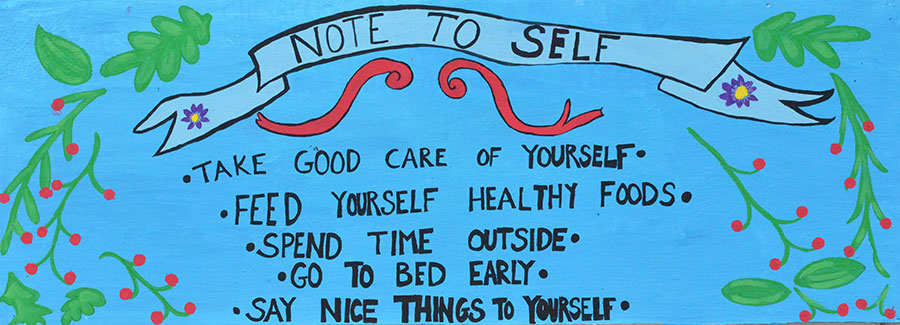 NOTE TO SELF
•TAKE GOOD CARE OF YOURSELF•
•FEED YOURSELF HEALTHY FOODS•
•SPEND TIME OUTSIDE•
•GO TO BED EARLY•
•SAY NICE THINGS TO YOURSELF•